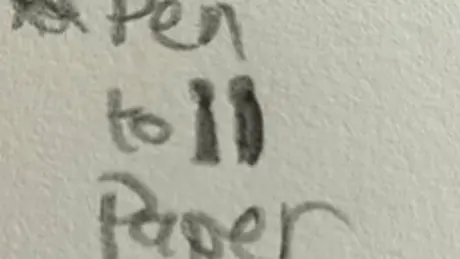 Pen
to
Paper